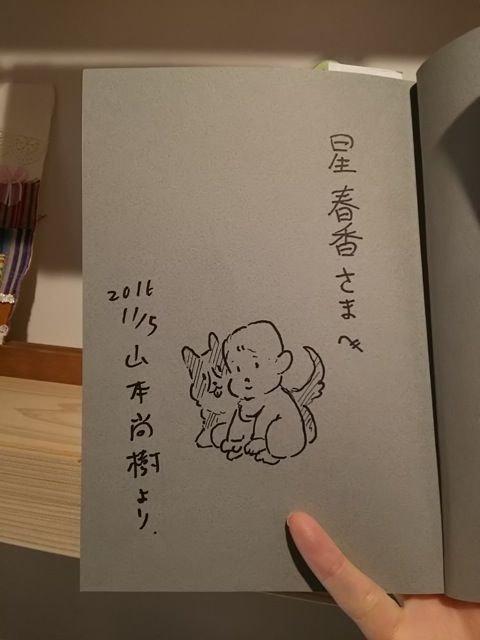 星 春香 さま へ
2016
11/5
山本尚樹より.